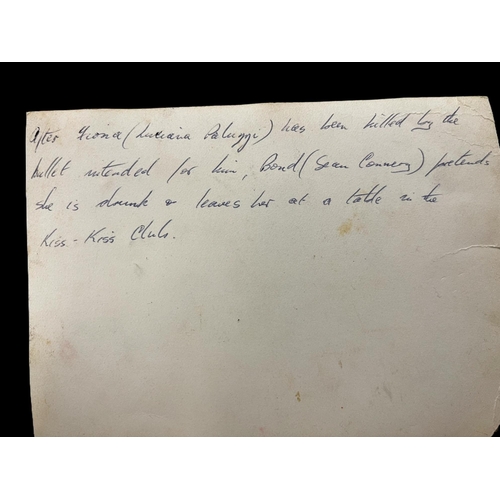 After Fiona (Luciana Paluzzi) has been killed by the
bullet intended for him, Bond (Sean Connery) pretends
she is drunk & leaves her at a table in the
Kiss-Kiss Club.